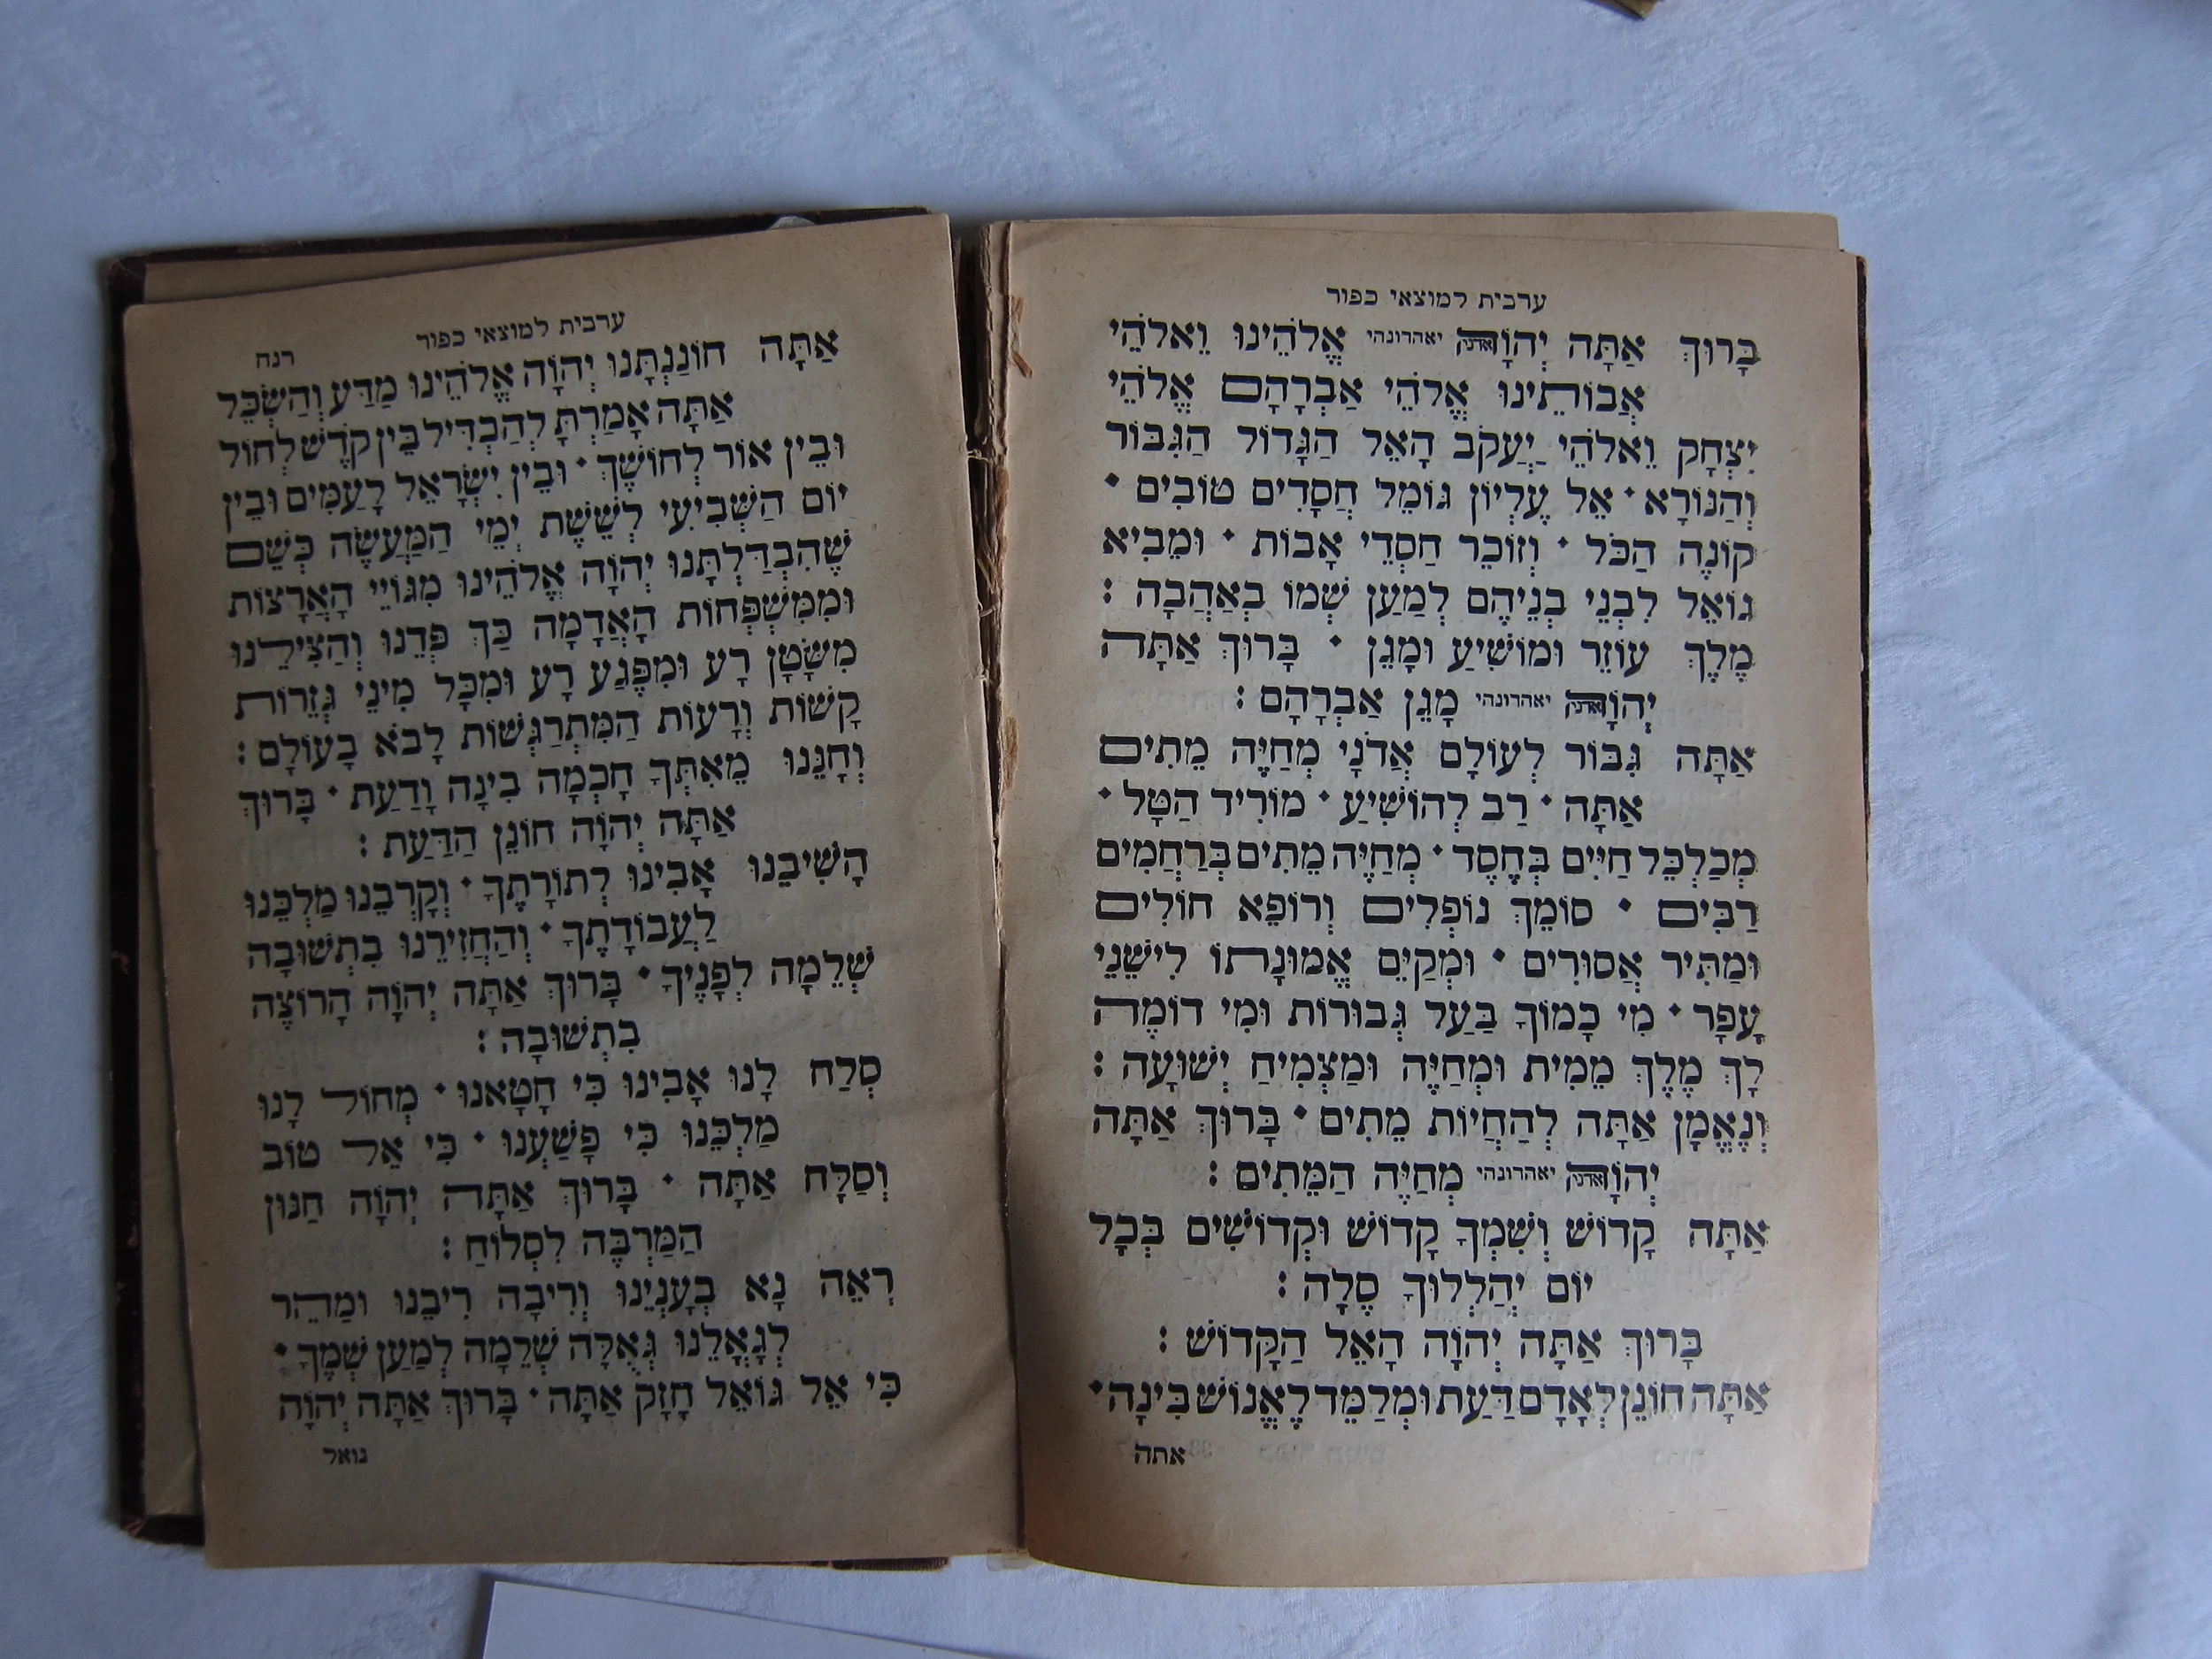 ערבית למוצאי כפור
בָּרוּךְ אַתָּה יְהוָֹה יאהדונהי אֱלֹהֵינוּ וֵאלֹהֵי
אֲבוֹתֵינוּ אֱלֹהֵי אַבְרָהָם אֱלֹהֵי
יִצְחָק וֵאלֹהֵי יַעֲקֹב הָאֵל הַגָּדוֹל הַגִּבּוֹר
וְהַנּוֹרָא • אֵל עֶלְיוֹן גּוֹמֵל חֲסָדִים טוֹבִים •
קוֹנֵה הַכֹּל • וְזוֹכֵר חַסְדֵי אָבוֹת • וּמֵבִיא
גוֹאֵל לִבְנֵי בְנֵיהֶם לְמַעַן שְׁמוֹ בְּאַהֲבָה :
מֶלֶךְ עוֹזֵר וּמוֹשִׁיעַ וּמָגֵן • בָּרוּךְ אַתָּה
יְהוָֹה יאהדונהי מָגֵן אַבְרָהָם :
אַתָּה גִּבּוֹר לְעוֹלָם אֲדֹנָי מְחַיֵּה מֵתִים
אַתָּה • רַב לְהוֹשִׁיעַ • מוֹרִיד הַטָּל •
מְכַלְכֵּל חַיִּים בְּחֶסֶד • מְחַיֵּה מֵתִים בְּרַחֲמִים
רַבִּים • סוֹמֵךְ נוֹפְלִים וְרוֹפֵא חוֹלִים
וּמַתִּיר אֲסוּרִים • וּמְקַיֵּם אֱמוּנָתוֹ לִישֵׁנֵי
עָפָר • מִי כָמוֹךָ בַּעַל גְּבוּרוֹת וּמִי דוֹמֶה
לָךְ מֶלֶךְ מֵמִית וּמְחַיֶּה וּמַצְמִיחַ יְשׁוּעָה :
וְנֶאֱמָן אַתָּה לְהַחֲיוֹת מֵתִים • בָּרוּךְ אַתָּה
יְהוָֹה יאהדונהי מְחַיֵּה הַמֵּתִים :
אַתָּה קָדוֹשׁ וְשִׁמְךָ קָדוֹשׁ וּקְדוֹשִׁים בְּכָל
יוֹם יְהַלְלוּךָ סֶלָה :
בָּרוּךְ אַתָּה יְהוָֹה הָאֵל הַקָּדוֹשׁ :
אַתָּה חוֹנֵן לְאָדָם דַּעַת וּמְלַמֵּד לֶאֱנוֹשׁ בִּינָה •
אתה
ערבית למוצאי כפור רנח
אַתָּה חוֹנַנְתָּנוּ יְהוָֹה אֱלֹהֵינוּ מַדָּע וְהַשְׂכֵּל
אַתָּה אָמַרְתָּ לְהַבְדִּיל בֵּין קֹדֶשׁ לְחוֹל
וּבֵין אוֹר לְחוֹשֶׁךְ • וּבֵין יִשְׂרָאֵל לָעַמִּים וּבֵין
יוֹם הַשְּׁבִיעִי לְשֵׁשֶׁת יְמֵי הַמַּעֲשֶׂה כְּשֵׁם
שֶׁהִבְדַּלְתָּנוּ יְהוָֹה אֱלֹהֵינוּ מִגּוֹיֵי הָאֲרָצוֹת
וּמִמִּשְׁפְּחוֹת הָאֲדָמָה כַּךְ פְּדֵנוּ וְהַצִּילֵנוּ
מִשָּׂטָן רָע וּמִפֶּגַע רָע וּמִכָּל מִינֵי גְּזֵרוֹת
קָשׁוֹת וְרָעוֹת הַמִּתְרַגְּשׁוֹת לָבֹא בָעוֹלָם :
וְחָנֵּנוּ מֵאִתְּךָ חָכְמָה בִינָה וָדַעַת • בָּרוּךְ
אַתָּה יְהוָֹה חוֹנֵן הַדַּעַת :
הֲשִׁיבֵנוּ אָבִינוּ לְתוֹרָתֶךָ • וְקָרְבֵנוּ מַלְכֵּנוּ
לַעֲבוֹדָתֶךָ • וְהַחֲזִירֵנוּ בִתְשׁוּבָה
שְׁלֵמָה לְפָנֶיךָ • בָּרוּךְ אַתָּה יְהוָֹה הָרוֹצֶה
בִתְשׁוּבָה :
סְלַח לָנוּ אָבִינוּ כִּי חָטָאנוּ • מְחוֹל לָנוּ
מַלְכֵּנוּ כִּי פָשָׁעְנוּ • כִּי אֵל טוֹב
וְסַלָּח אַתָּה • בָּרוּךְ אַתָּה יְהוָֹה חַנּוּן
הַמַּרְבֶּה לִסְלוֹחַ :
רְאֵה נָא בְעָנְיֵנוּ וְרִיבָה רִיבֵנוּ וּמַהֵר
לְגָאֳלֵנוּ גְּאֻלָּה שְׁלֵמָה לְמַעַן שְׁמֶךָ •
כִּי אֵל גּוֹאֵל חָזָק אַתָּה • בָּרוּךְ אַתָּה יְהוָֹה
גואל